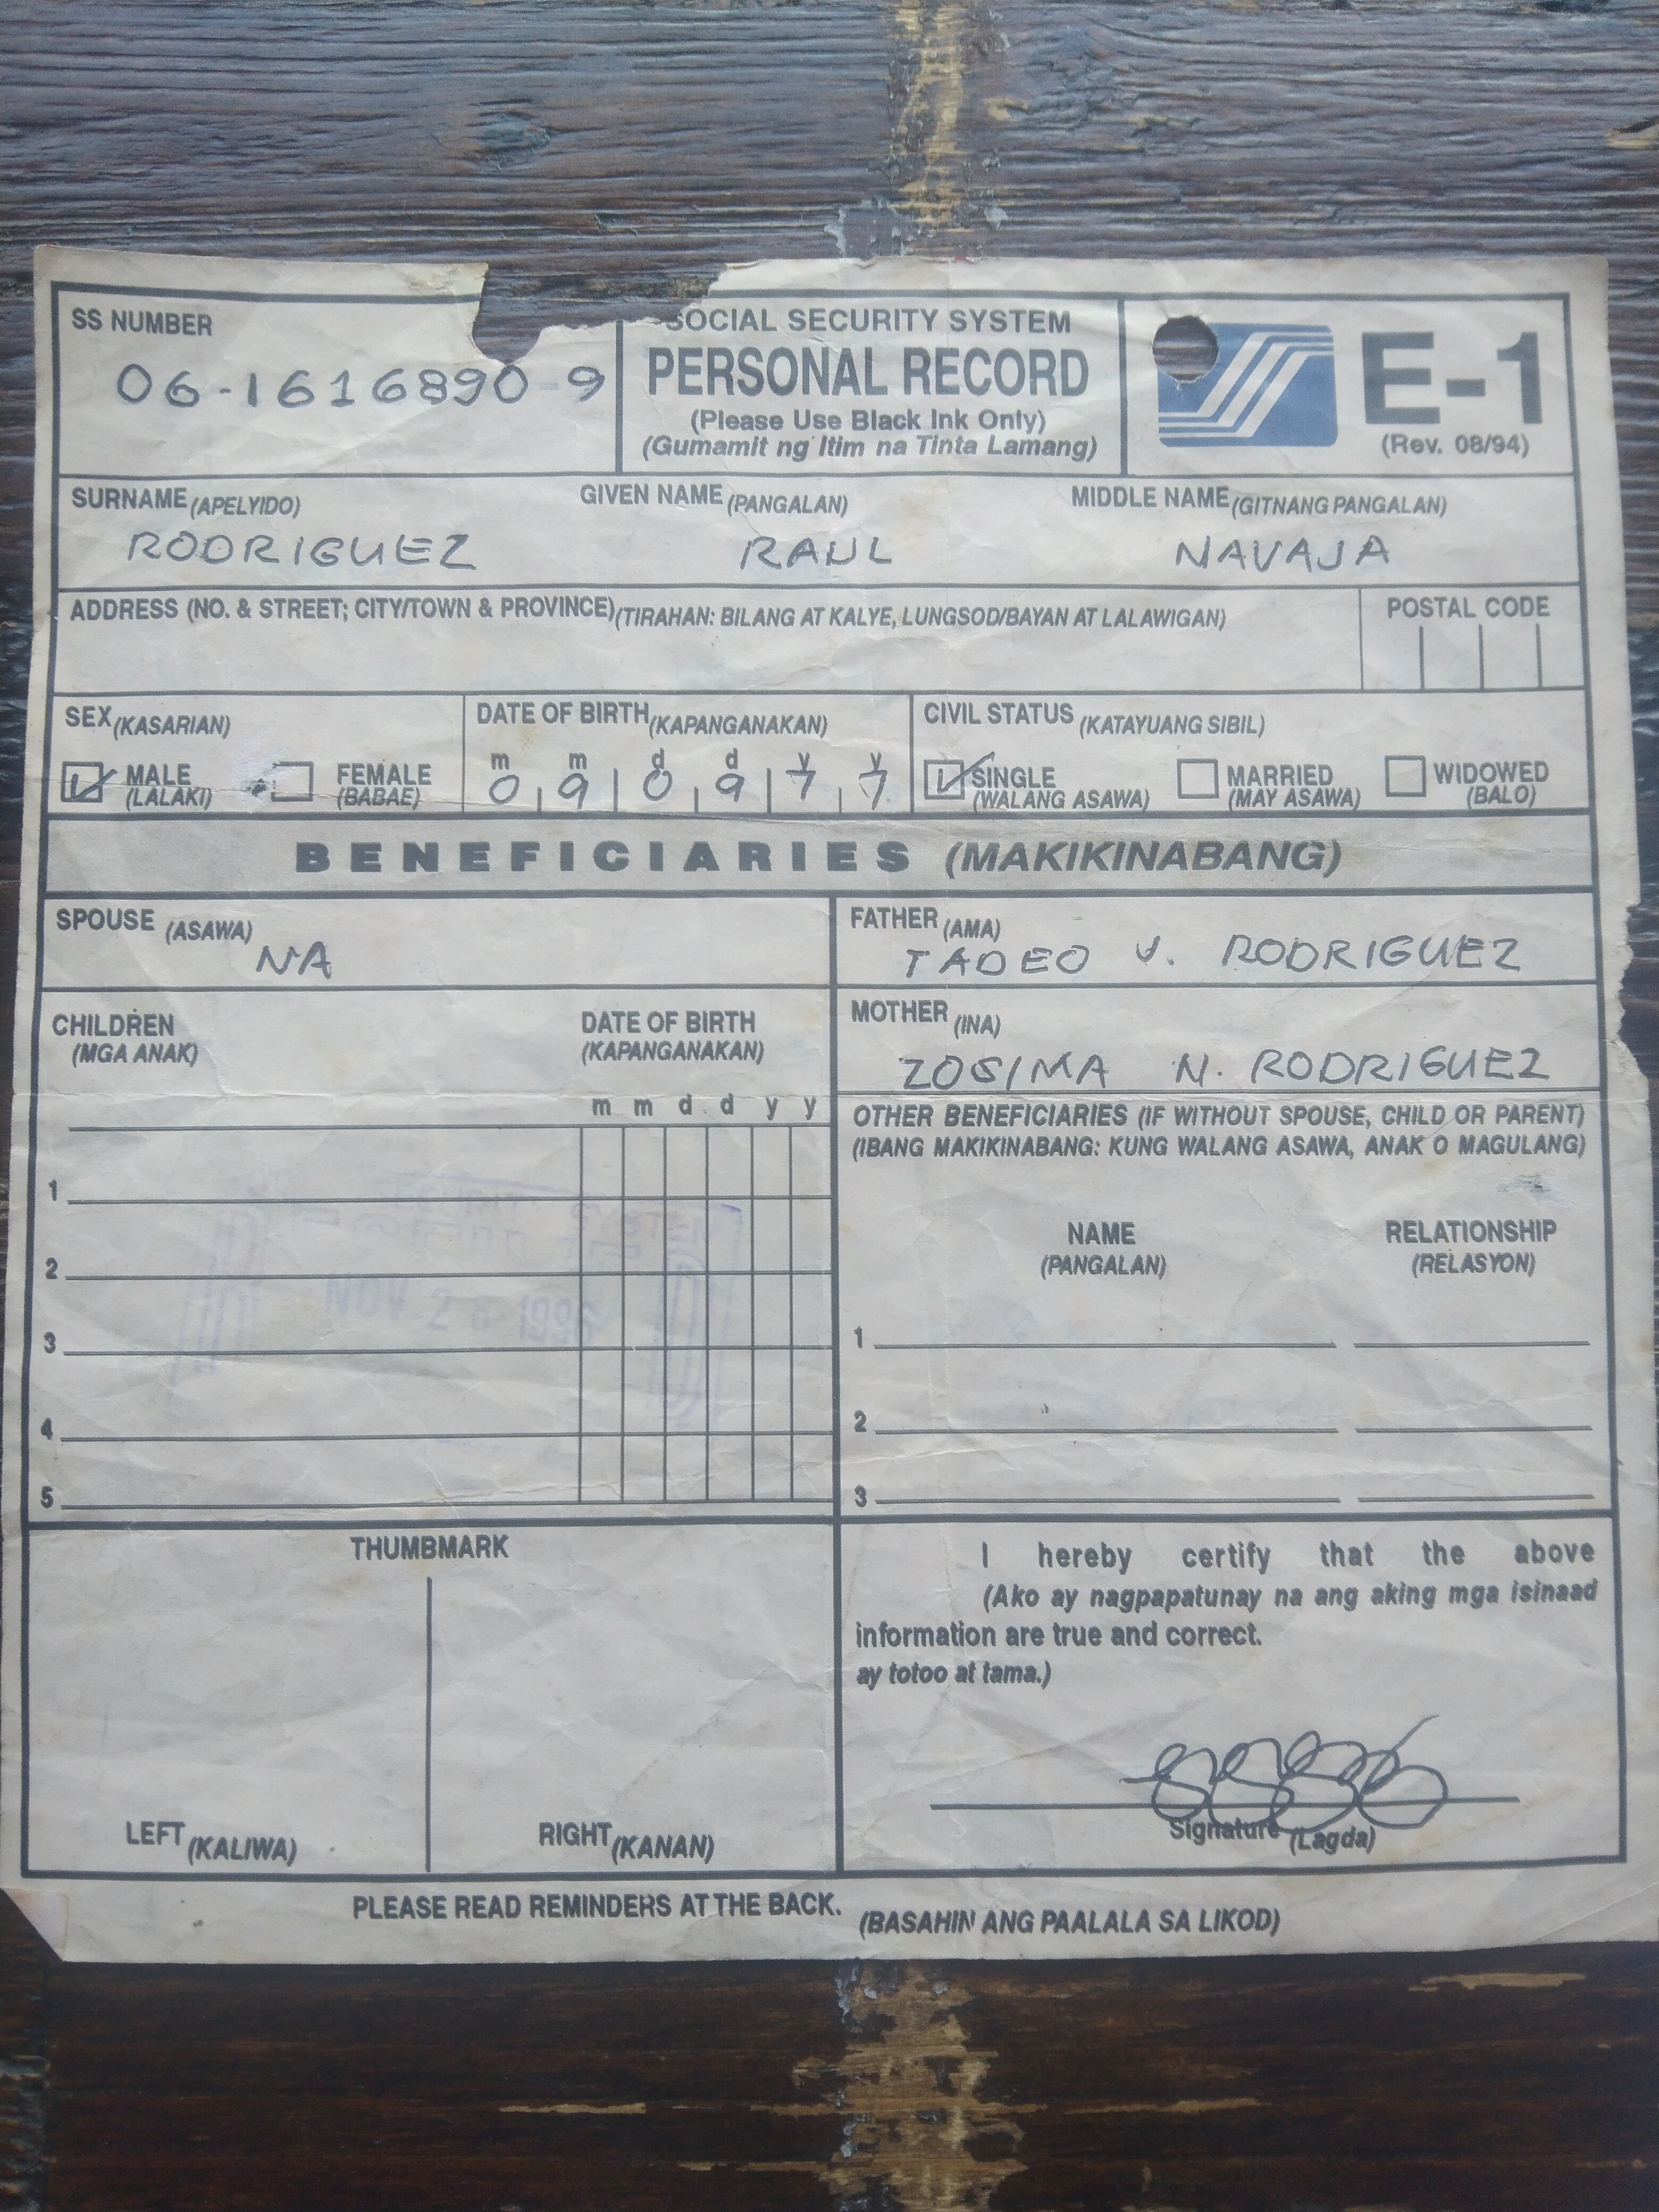 SS NUMBER
06-1616890-9
SOCIAL SECURITY SYSTEM
PERSONAL RECORD
(Please Use Black Ink Only)
(Gumamit ng Itim na Tinta Lamang)
E-1
(Rev. 08/94)
SURNAME (APELYIDO) GIVEN NAME (PANGALAN) MIDDLE NAME (GITNANG PANGALAN)
RODRIGUEZ RAUL NAVAJA
ADDRESS (NO. & STREET; CITY/TOWN & PROVINCE) (TIRAHAN: BILANG AT KALYE, LUNGSOD/BAYAN AT LALAWIGAN) POSTAL CODE
SEX (KASARIAN) DATE OF BIRTH (KAPANGANAKAN) CIVIL STATUS (KATAYUANG SIBIL)
m m d d y y
MALE FEMALE 0 9 0 9 7 7 SINGLE MARRIED WIDOWED
(LALAKI) (BABAE) (WALANG ASAWA) (MAY ASAWA) (BALO)
BENEFICIARIES (MAKIKINABANG)
SPOUSE (ASAWA)
NA
FATHER (AMA)
TADEO V. RODRIGUEZ
CHILDREN DATE OF BIRTH
(MGA ANAK) (KAPANGANAKAN)
m m d d y y
1
2
NOV 1996
3
4
5
MOTHER (INA)
ZOSIMA N. RODRIGUEZ
OTHER BENEFICIARIES (IF WITHOUT SPOUSE, CHILD OR PARENT)
(IBANG MAKIKINABANG: KUNG WALANG ASAWA, ANAK O MAGULANG)
NAME RELATIONSHIP
(PANGALAN) (RELASYON)
1
2
3
THUMBMARK
LEFT (KALIWA) RIGHT (KANAN)
I hereby certify that the above
(Ako ay nagpapatunay na ang aking mga isinaad
information are true and correct.
ay totoo at tama.)
Signature (Lagda)
PLEASE READ REMINDERS AT THE BACK. (BASAHIN ANG PAALALA SA LIKOD)